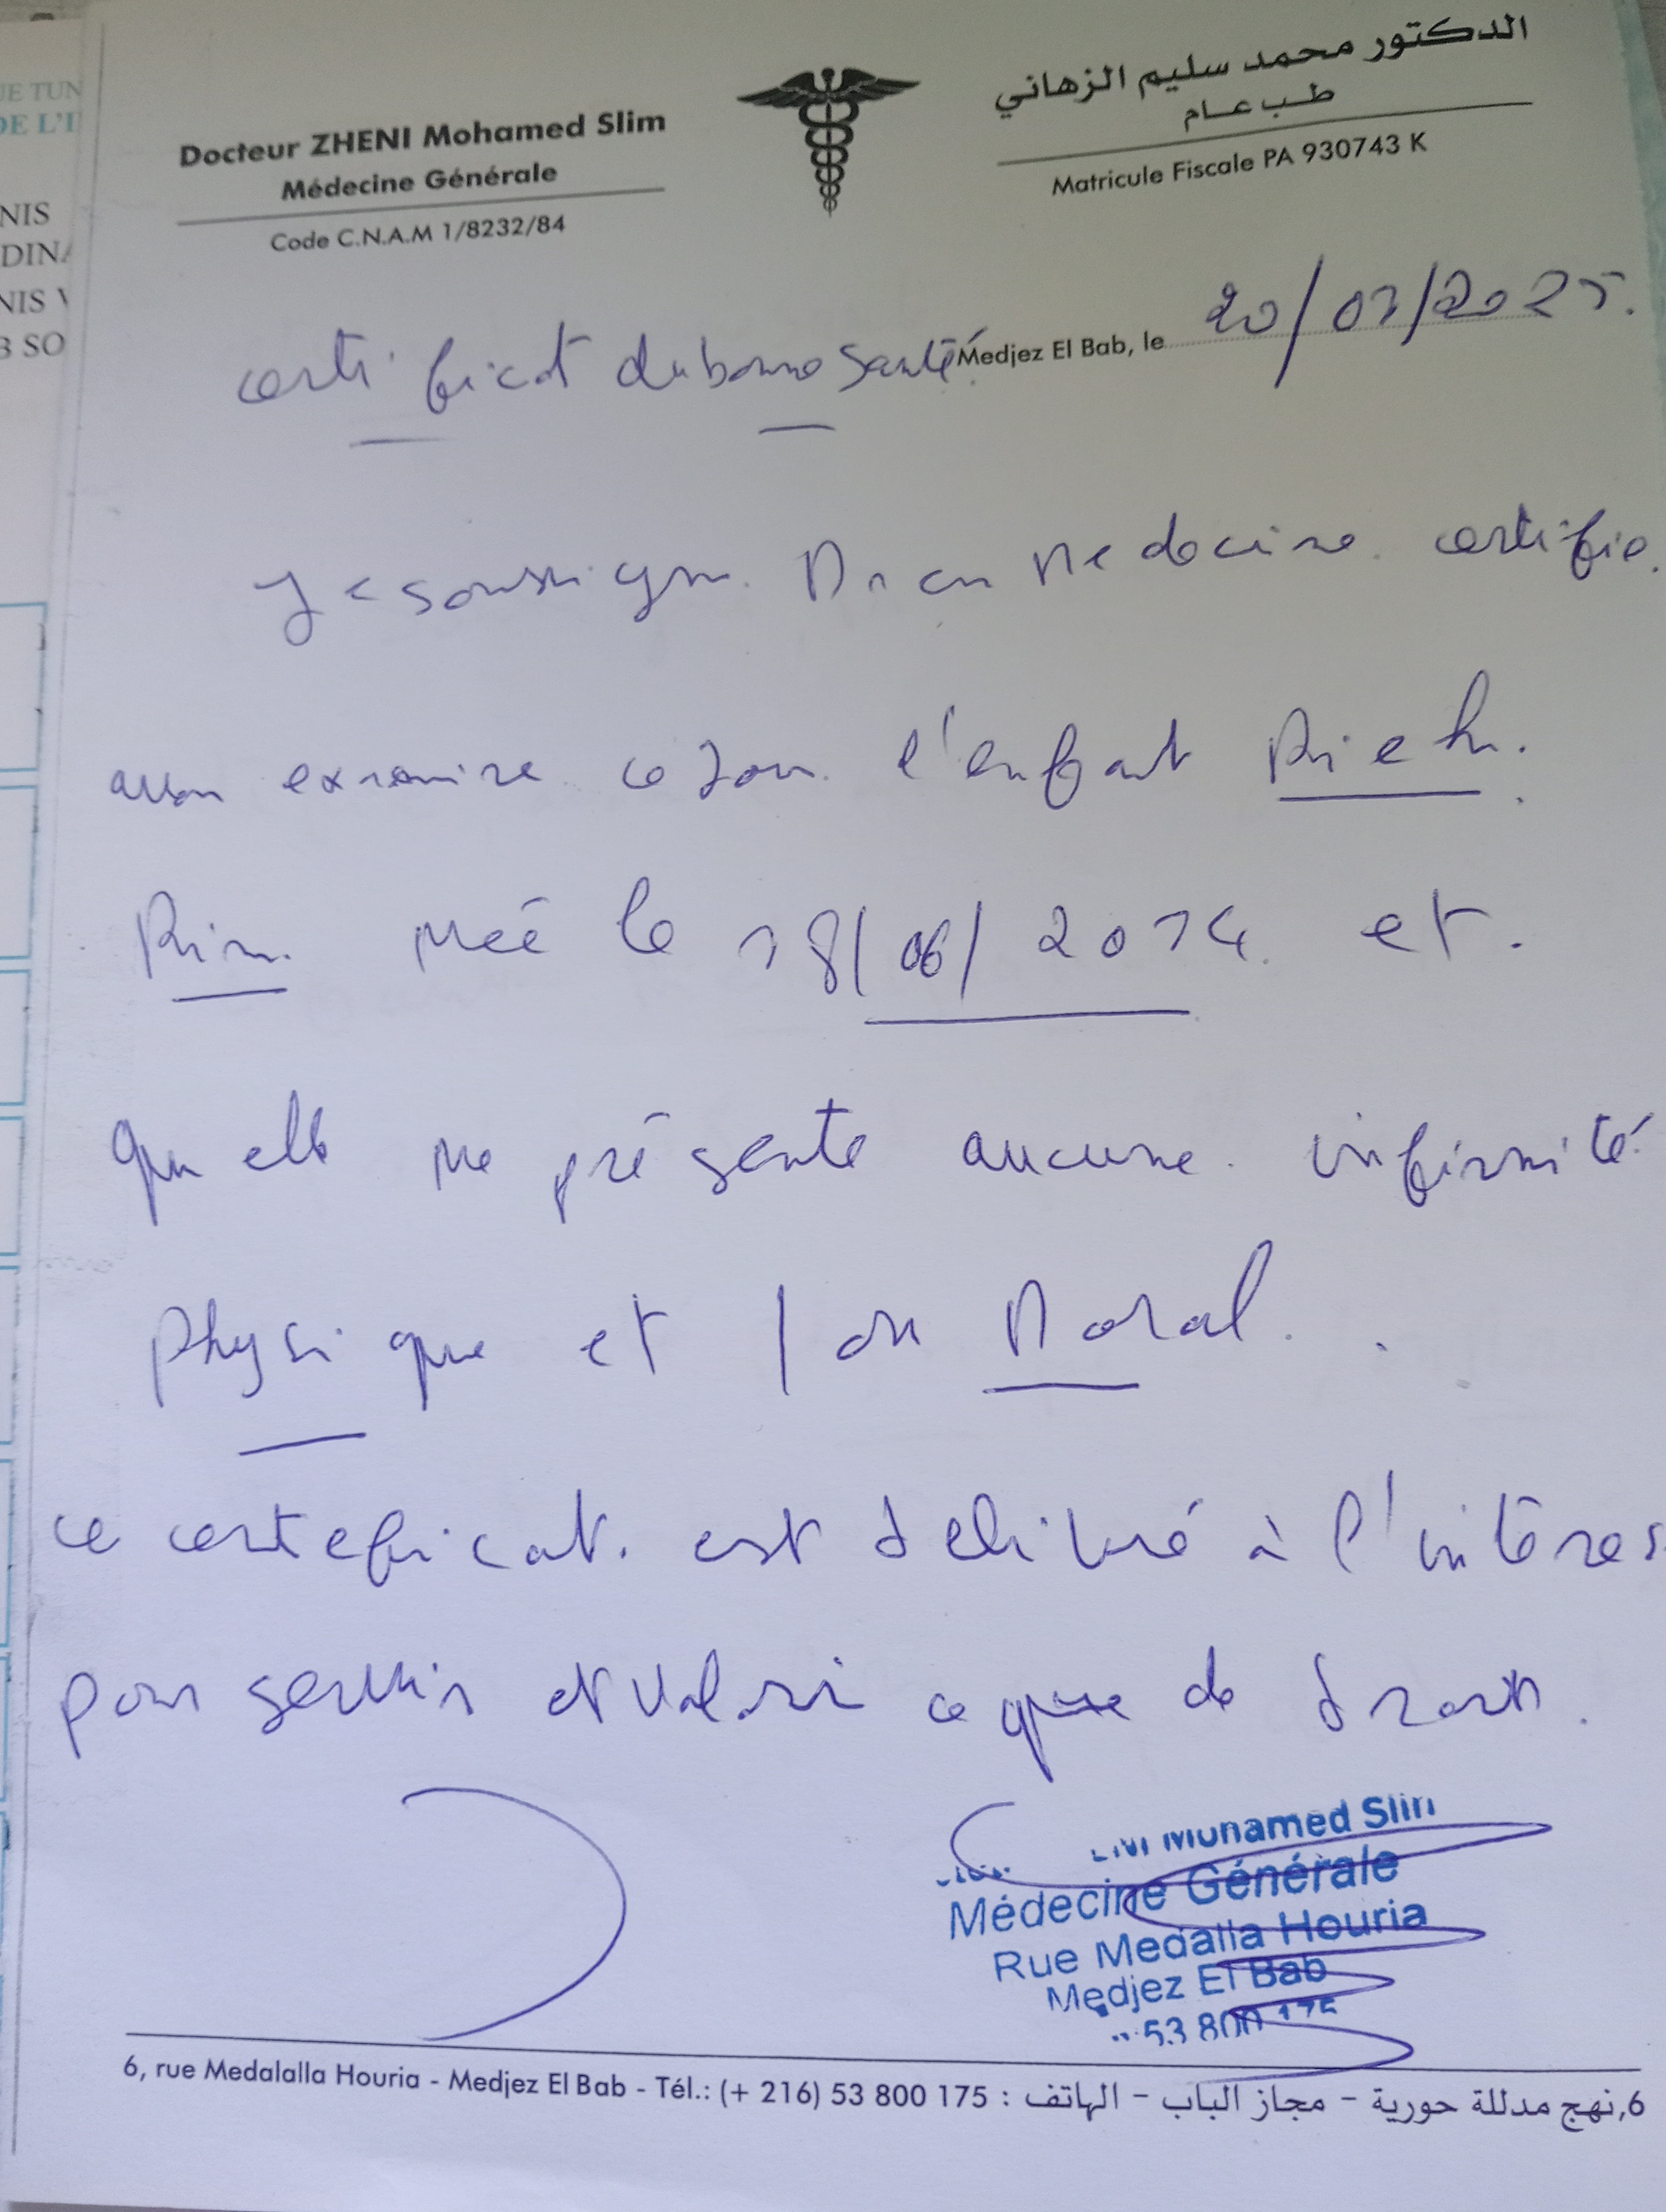 UE TUN
DE L'I
NIS
DINA
NIS V
B SO
Docteur ZHENI Mohamed Slim
Médecine Générale
Code C.N.A.M 1/8232/84
الدكتور محمد سليم الزهاني
طب عام
Matricule Fiscale PA 930743 K
Medjez El Bab, le 20/03/2025.
certificat de bonne santé
Je soussigné Dr en Medecine certifie
avoir examiné ce jour l'enfant Rieh.
Rim née le 18/06/2014 et.
qu elle ne présente aucune infirmité
physique et / ou Moral.
ce certeficat. est délivré à l'intéres
pour servir et valoir ce que de droit.
Mohamed Slim
Médecine Générale
Rue Medalla Houria
Medjez El Bab
53 800 175
6, rue Medalalla Houria - Medjez El Bab - Tél.: (+ 216) 53 800 175 : 6,نهج مدللة حورية - مجاز الباب - الهاتف